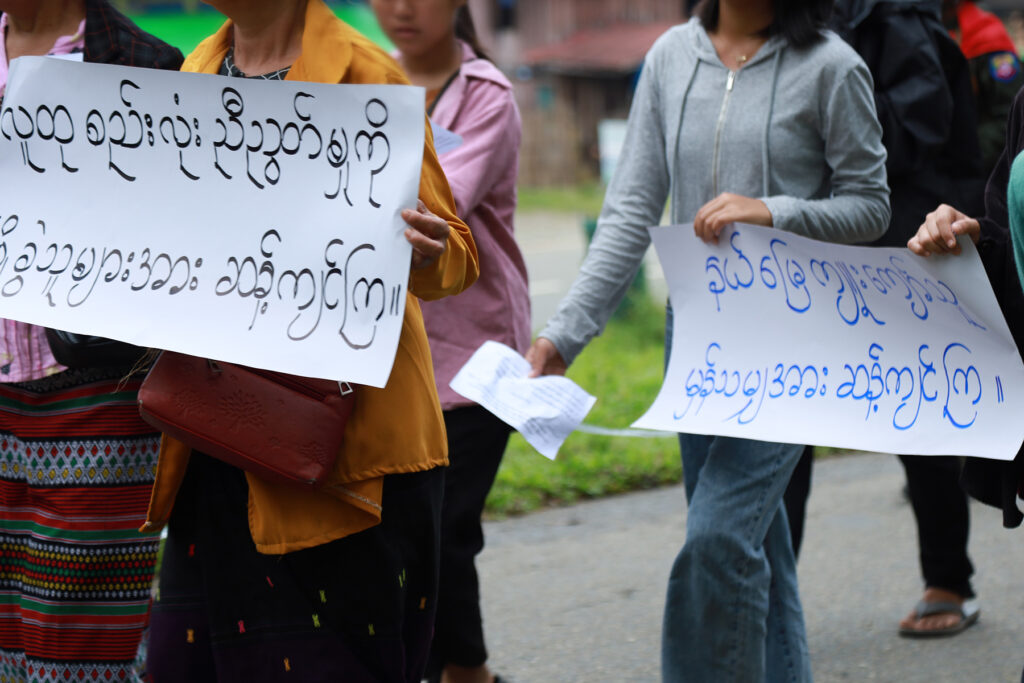 လူထု စည်းလုံး ညီညွတ်မှုကို
ခွဲသူများအား ဆန့်ကျင်ကြ။
နယ်မြေကျူးကျော်သူ
မှန်သမျှအား ဆန့်ကျင်ကြ။